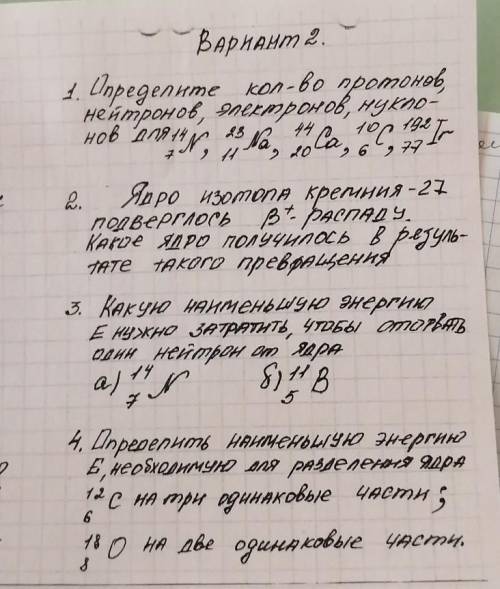 Вариант 2.
1. Определите кол-во протонов,
нейтронов, электронов, нукло-
нов для ¹⁴₇N, ²³₁₁Na, ⁴⁴₂₀Ca, ¹⁰₆C, ¹⁹²₇₇Ir
2. Ядро изотопа кремния-27
подверглось β⁺-распаду.
Какое ядро получилось в резуль-
тате такого превращения
3. Какую наименьшую энергию
E нужно затратить, чтобы оторвать
один нейтрон от ядра
а) ¹⁴₇N б) ¹¹₅B
4. Определить наименьшую энергию
E, необходимую для разделения ядра
¹²₆C на три одинаковые части;
¹⁸₈O на две одинаковые части.